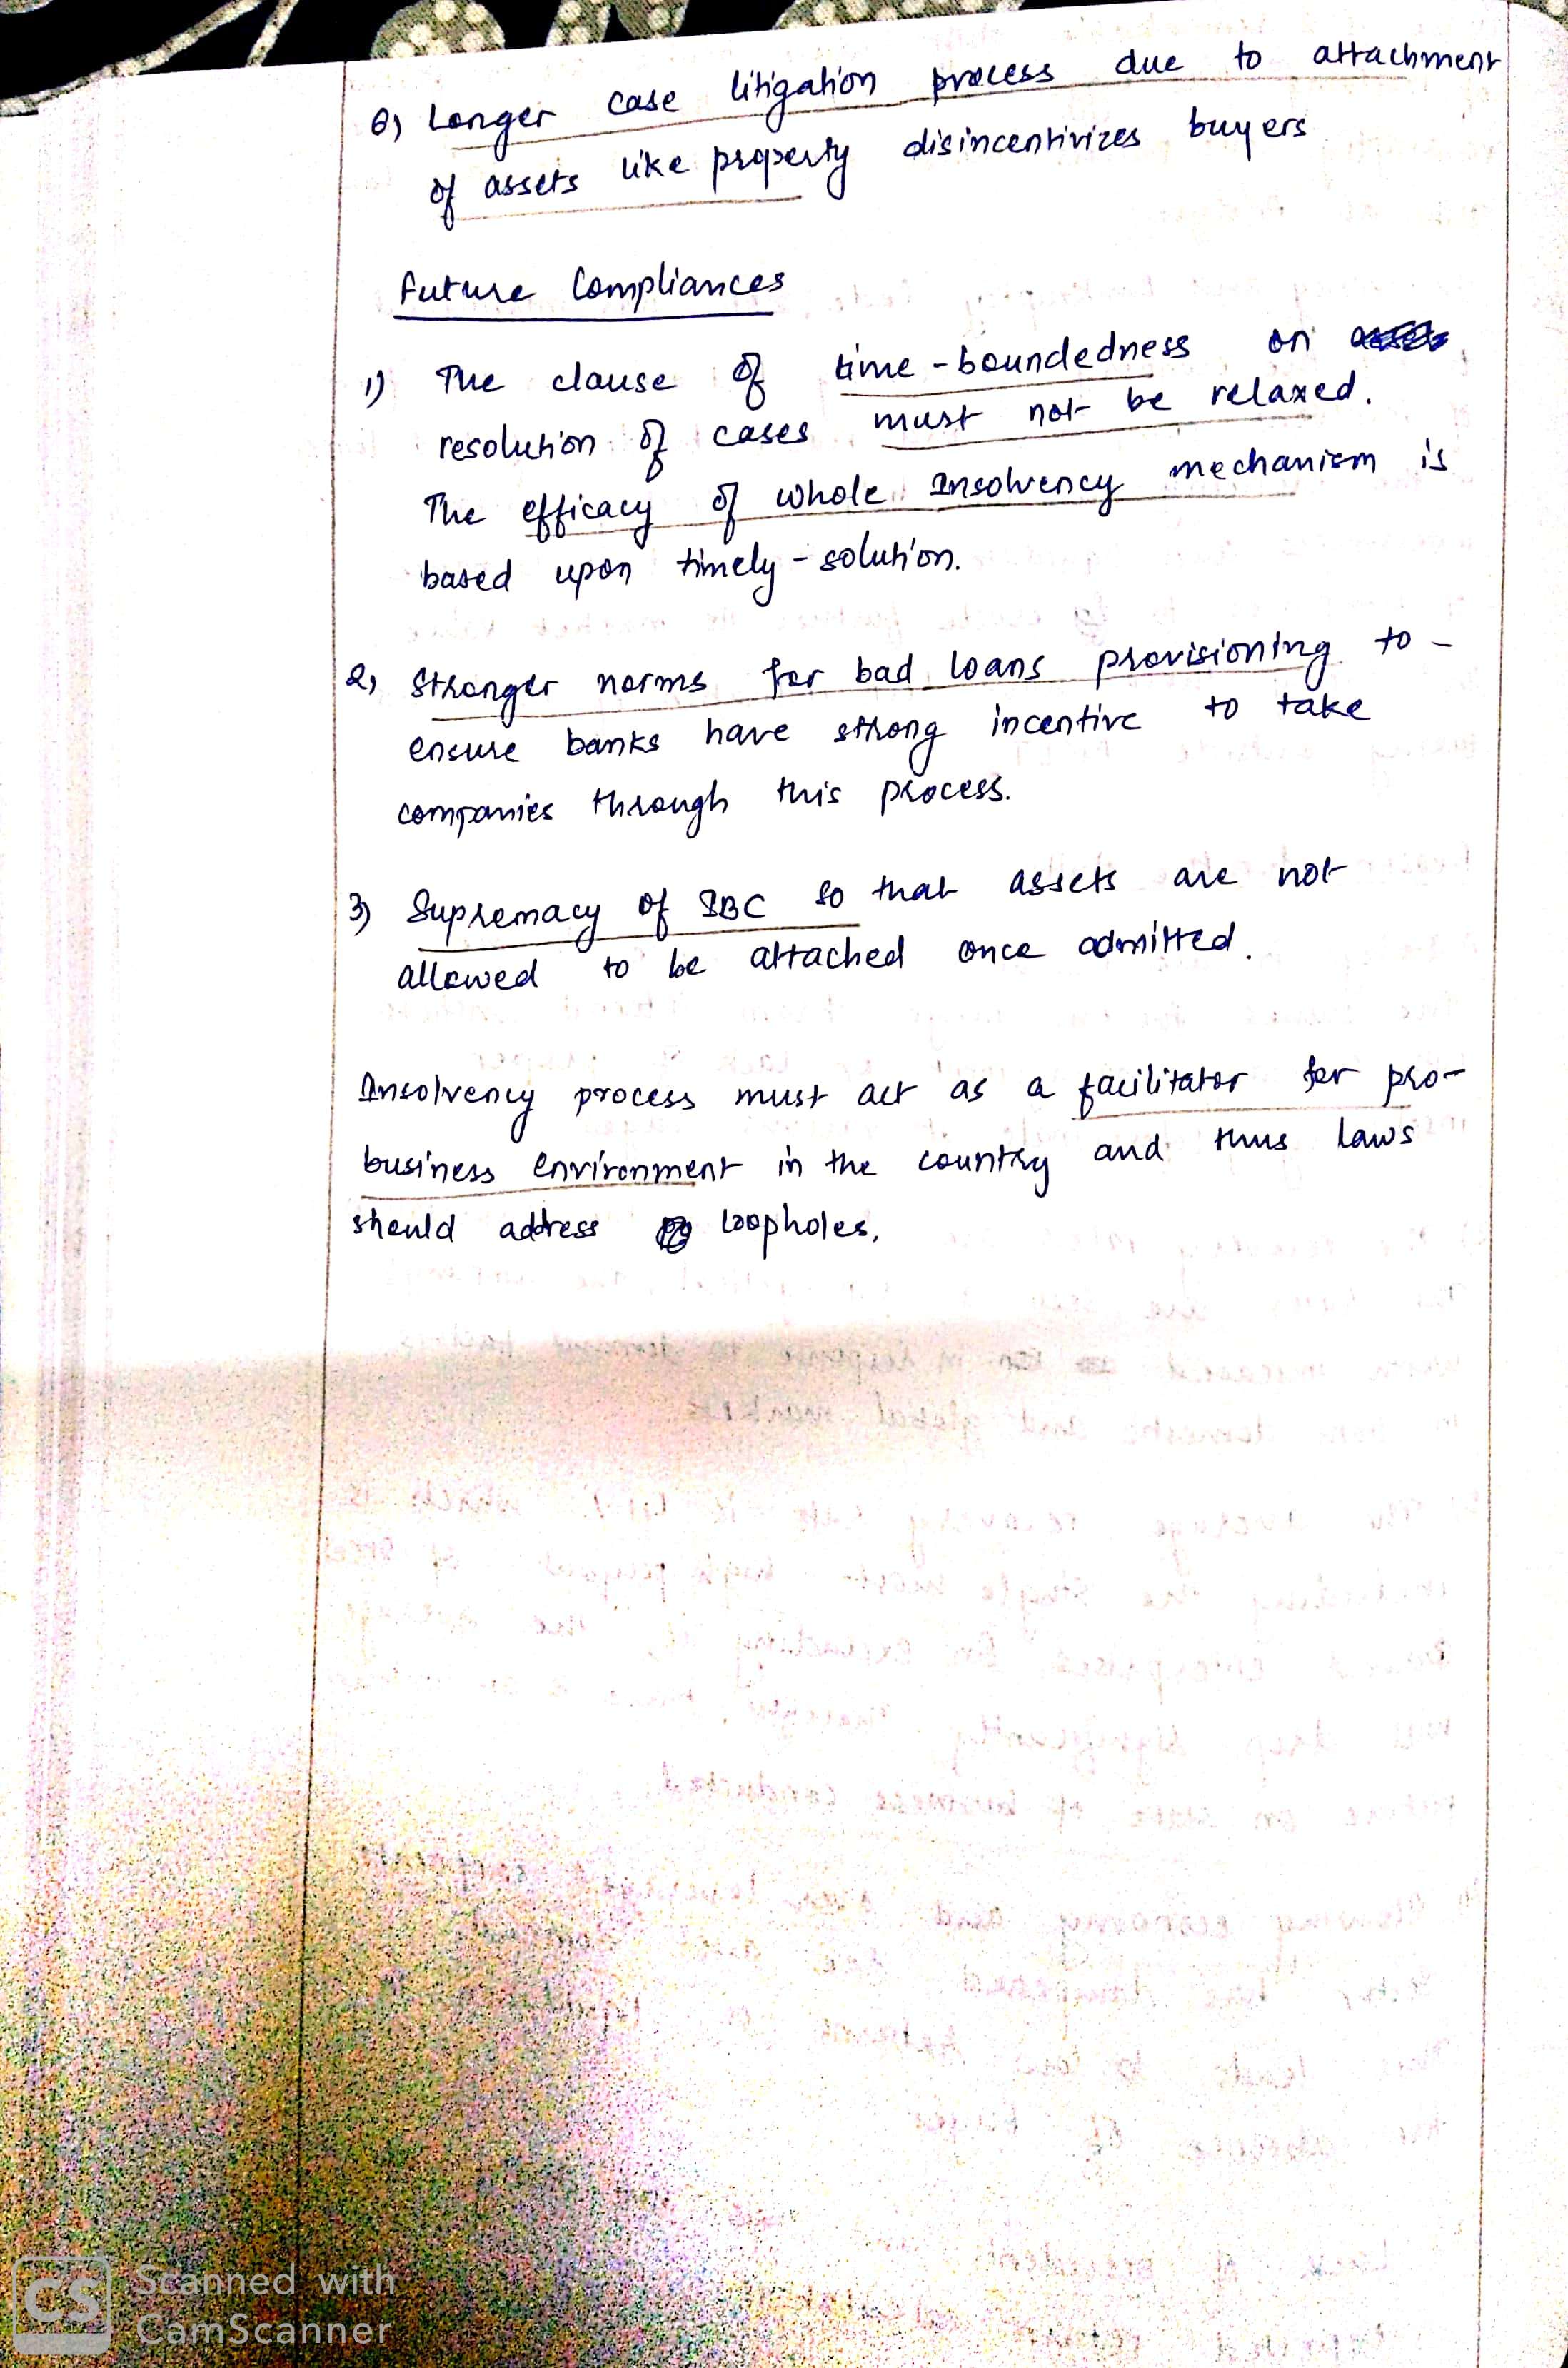 6) Longer case litigation process due to attachment
of assets like property disincentivizes buyers
Future Compliances
1) The clause of time-boundedness on
resolution of cases must not be relaxed.
The efficacy of whole Insolvency mechanism is
based upon timely-solution.
2) Stronger norms for bad loans provisioning to-
ensure banks have strong incentive to take
companies through this process.
3) Supremacy of IBC so that assets are not
allowed to be attached once admitted.
Insolvency process must act as a facilitator for pro-
business environment in the country and thus laws
should address loopholes.
CS Scanned with
CamScanner